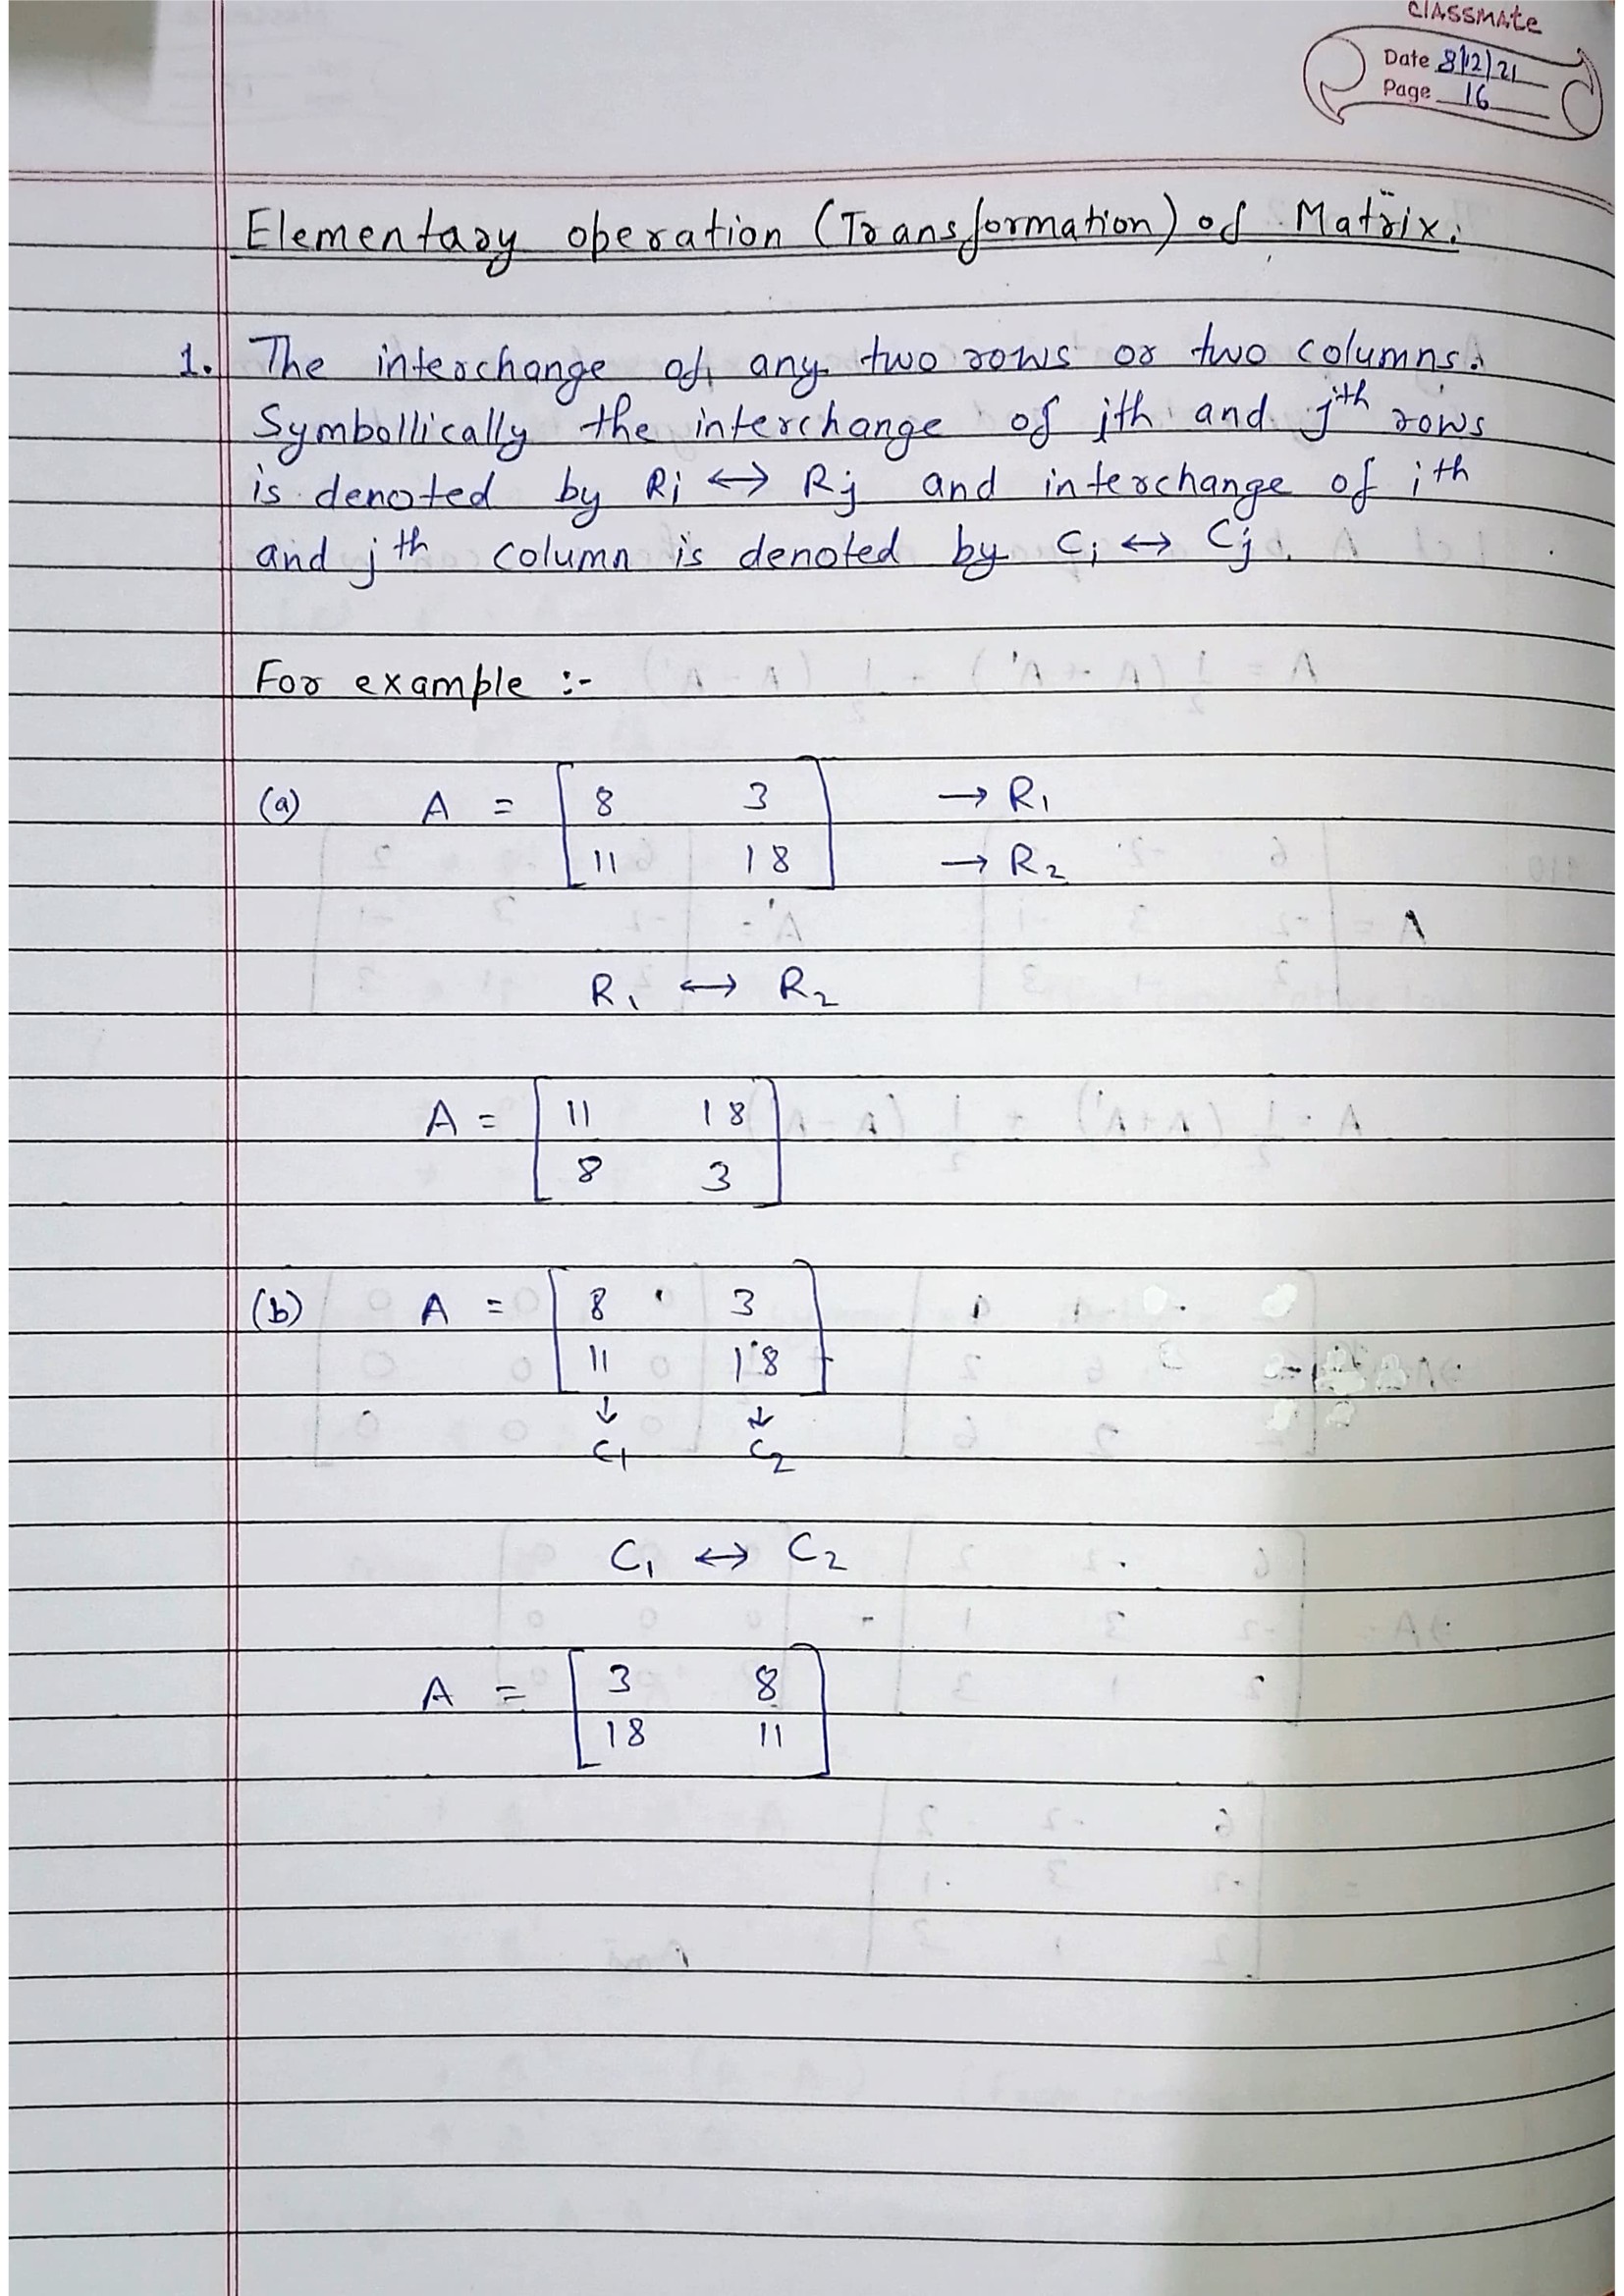 classmate
Date 8/12/21
Page 16
Elementary operation (Transformation) of Matrix.
1. The interchange of any two rows or two columns.
Symbollically the interchange of ith and jth rows
is denoted by Ri ↔ Rj and interchange of ith
and jth column is denoted by Ci ↔ Cj.
For example :-
(a) A = [ 8 3 ] → R1
[ 11 18 ] → R2
R1 ↔ R2
A = [ 11 18 ]
[ 8 3 ]
(b) A = [ 8 3 ]
[ 11 18 ]
↓ ↓
C1 C2
C1 ↔ C2
A = [ 3 8 ]
[ 18 11 ]